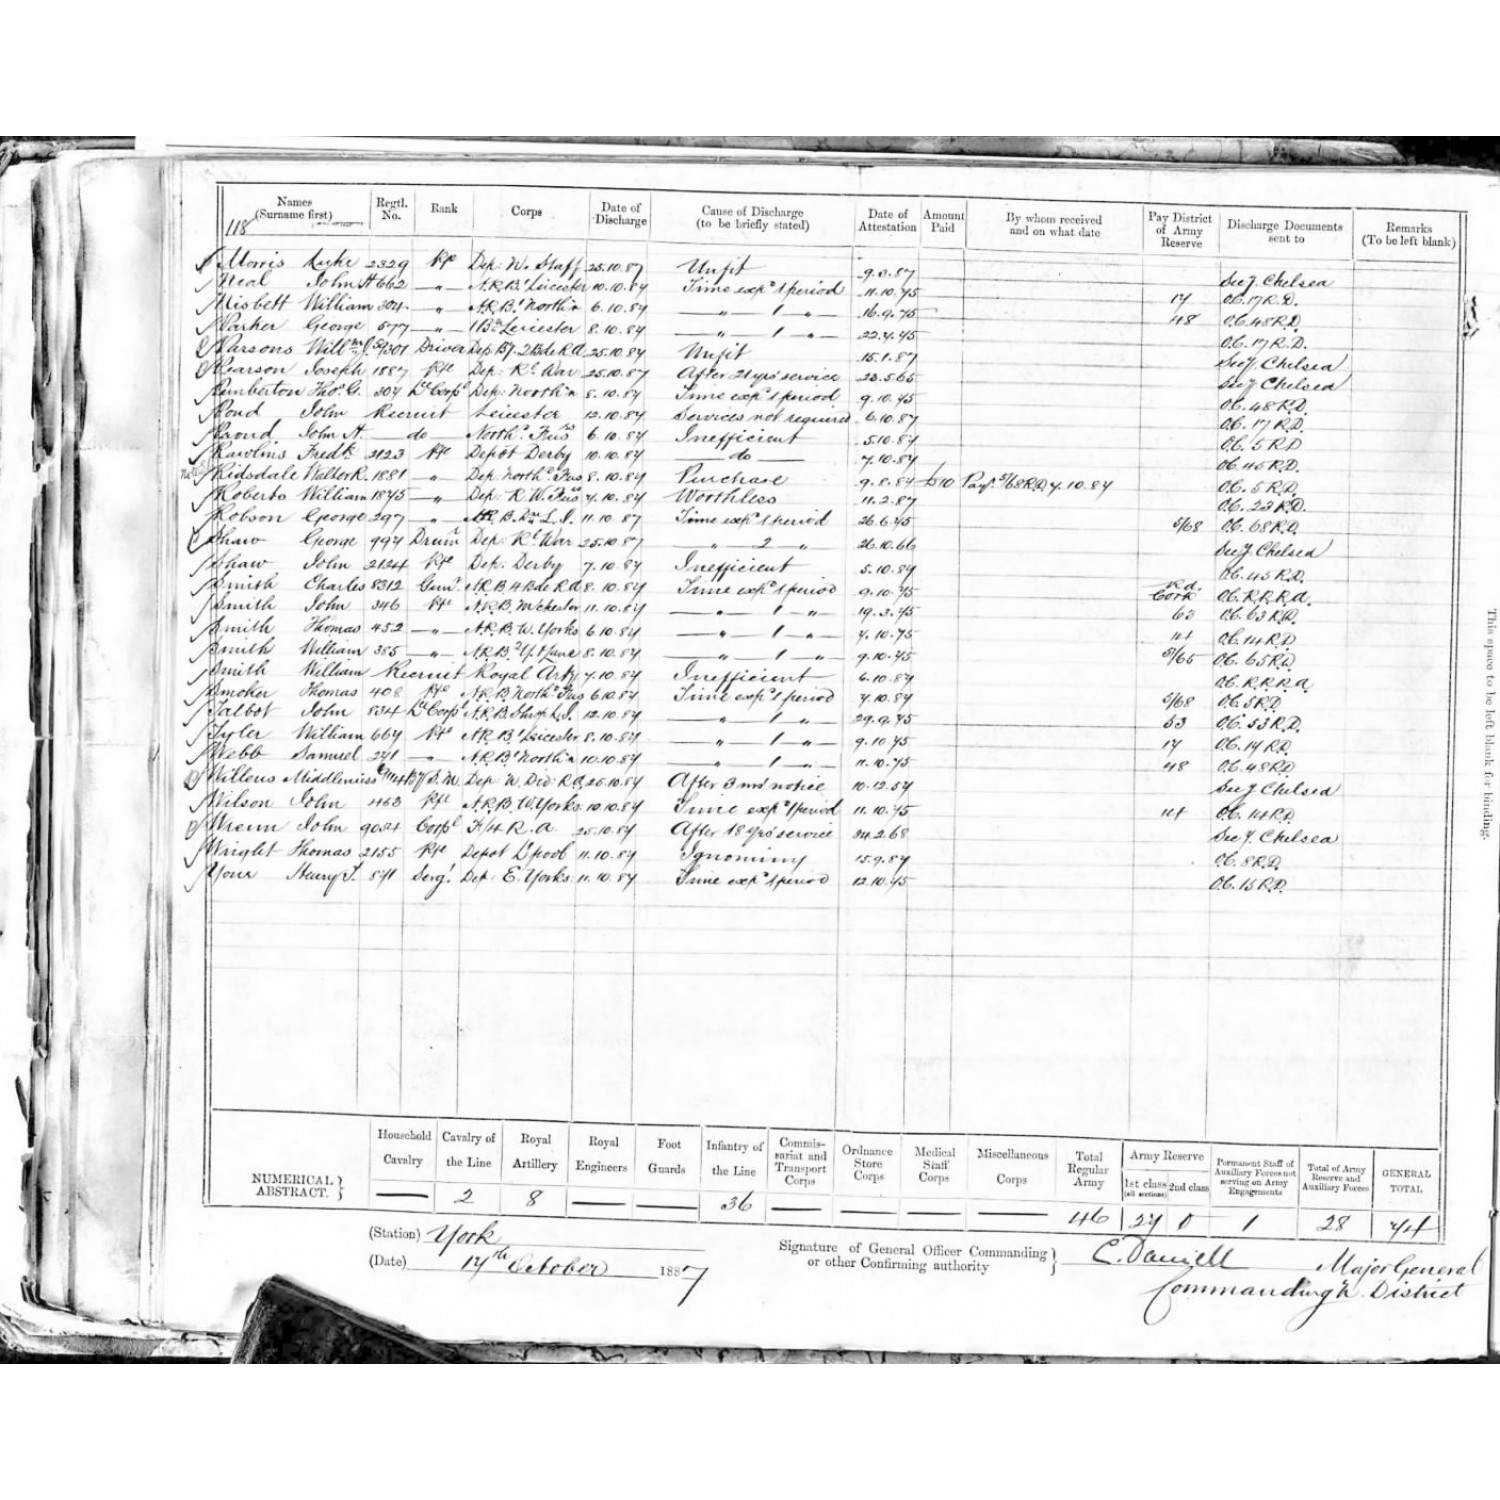 Names (Surname first) Regtl. No. Rank Corps Date of Discharge Cause of Discharge (to be briefly stated) Date of Attestation Amount Paid By whom received and on what date Pay District of Army Reserve Discharge Documents sent to Remarks (To be left blank)
118
Morris Luke 2329 Pte Dep: N. Staff 25.10.87 Unfit 9.3.87 Secy. Chelsea
Neal John H 662 " A.R.B. Leicester 10.10.87 Time expd 1 period 11.10.75 17 O.C. 17 R.D.
Nisbett William 304 " A.R.B. North'n 6.10.87 " 1 " 16.9.75 48 O.C. 48 R.D.
Parker George 577 " Leicester 8.10.87 " 1 " 22.4.75 O.C. 17 R.D.
Parsons Willm J. Driver 25.10.87 Unfit 15.1.87 Secy. Chelsea
Pearson Joseph 1887 Pte Dep: Rl. War. 25.10.87 After 21 yrs' service 23.5.65 Secy. Chelsea
Pemberton Thos. G. 307 Lce Corpl Dep: North'n 8.10.87 Time expd 1 period 9.10.75 O.C. 48 R.D.
Pond John Recruit Leicester 12.10.87 Services not required 6.10.87 O.C. 17 R.D.
John A. do North'd Fus 6.10.87 Inefficient 5.10.87 O.C. 5 R.D.
Rawlins Fredk 2123 Pte Depôt Derby 10.10.87 do 7.10.87 O.C. 45 R.D.
Ridsdale Walter R. 1881 " Dep: North'd Fus 8.10.87 Purchase 9.8.87 £10 Paymr 5/68 R.D. 7.10.87 O.C. 5 R.D.
Roberts William 1875 " Dep: R.W. Fus 7.10.87 Worthless 11.2.87 O.C. 23 R.D.
Robson George 297 " A.R.B. Dm L.I. 11.10.87 Time expd 1 period 26.6.75 5/68 O.C. 68 R.D.
Shaw George 994 Drumr Dep: Rl. War 25.10.87 " 2 " 26.10.66 Secy. Chelsea
Shaw John 2124 Pte Dep: Derby 7.10.87 Inefficient 5.10.87 O.C. 45 R.D.
Smith Charles 8312 Gunr A.R.B. 4 Bde R.A. 8.10.87 Time expd 1 period 9.10.75 R.A. Cork O.C. R.R.R.A.
Smith John 346 Pte A.R.B. M'chester 11.10.87 " 1 " 19.3.75 63 O.C. 63 R.D.
Smith Thomas 452 " A.R.B. W. Yorks 6.10.87 " 1 " 7.10.75 14 O.C. 14 R.D.
Smith William 385 " A.R.B. Y. & Lanc 8.10.87 " 1 " 9.10.75 O.C. 65 R.D.
Smith William Recruit Royal Arty 7.10.87 Inefficient 6.10.87 O.C. R.R.R.A.
Smoker Thomas 408 Pte A.R.B. North'd Fus 6.10.87 Time expd 1 period 7.10.87 5/68 O.C. 5 R.D.
Talbot John 834 Lce Corpl A.R.B. Shrop. L.I. 12.10.87 " 1 " 29.9.75 53 O.C. 53 R.D.
Tyler William 664 Pte A.R.B. Leicester 8.10.87 " 1 " 9.10.75 17 O.C. 17 R.D.
Webb Samuel 271 " A.R.B. North'n 10.10.87 " 1 " 11.10.75 48 O.C. 48 R.D.
Willens Dep: N. Div: R.A. 25.10.87 After 3 ms' notice 10.12.57 Secy. Chelsea
Wilson John 463 Pte A.R.B. W. Yorks 10.10.87 Time expd 1 period 11.10.75 14 O.C. 14 R.D.
Wrenn John Corpl R.A. 25.10.87 After 18 yrs' service 24.2.68 Secy. Chelsea
Wright Thomas 2155 Pte Depot L'pool 11.10.87 Ignominy 15.9.87 O.C. 8 R.D.
Your Henry T. 871 Sergt Dep: E. Yorks 11.10.87 Time expd 1 period 12.10.75 O.C. 15 R.D.
This space to be left blank for binding.
NUMERICAL ABSTRACT. Household Cavalry Cavalry of the Line Royal Artillery Royal Engineers Foot Guards Infantry of the Line Commissariat and Transport Corps Ordnance Store Corps Medical Staff Corps Miscellaneous Corps Total Regular Army Army Reserve 1st class (all sections) 2nd class Permanent Staff of Auxiliary Forces not serving on Army Engagements Total of Army Reserve and Auxiliary Forces GENERAL TOTAL
— 2 8 — — 36 — — — — 46 27 0 1 28 74
(Station) York
(Date) 17th October 1887
Signature of General Officer Commanding or other Confirming authority C. Daniell Major General
Commanding N. District